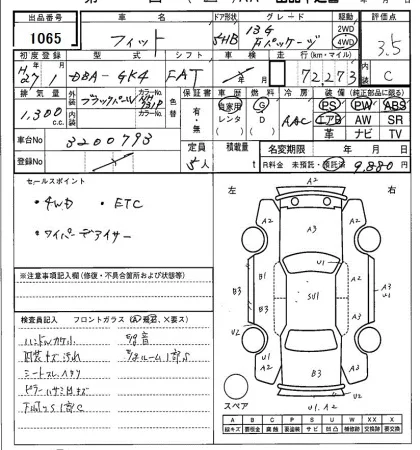 出品番号 車名 ドア形状 グレード 駆動 評価点
1065 フィット 5HB 13G Fパッケージ 2WD 4WD 3.5
初度登録 型式 シフト 車検 走行(km・マイル) 内装
H27 1 DBA-GK4 FAT 72,273 C
排気量 外装 カラーNo. 色替 保証書 車歴 燃料 冷房 装備(純正部品に限る)
1,300 c.c. ブラックパール NH731P 有・無 自家用 レンタ G D AAC PS PW ABS
内装 カラーNo. エアB AW SR
革 ナビ TV
車台No 3200793
定員 積載量 名変期限 年 月 日
登録No 5人 t R料金 未預託・預託済 9,880円
セールスポイント
・4WD ・ETC
・ワイパーデアイサー
※注意事項記入欄(修復・不具合箇所および状態等)
検査員記入 フロントガラス(A飛石、X要ス)
ハンドルカケ小 Eg音
内装キズ汚れ
シートスレ
ピラーハサミキズ
左 右
A2
A2 A3 A2
B1 B1 A2
B3 B3 SU1 A3 A3
U1
U2 U2
A3 A2
B3
U1
U1.A2
スペア
A B C P S U W X XX
線キズ 要板金 腐食 要塗装 サビ 凹凸 補修跡 要交換 交換済